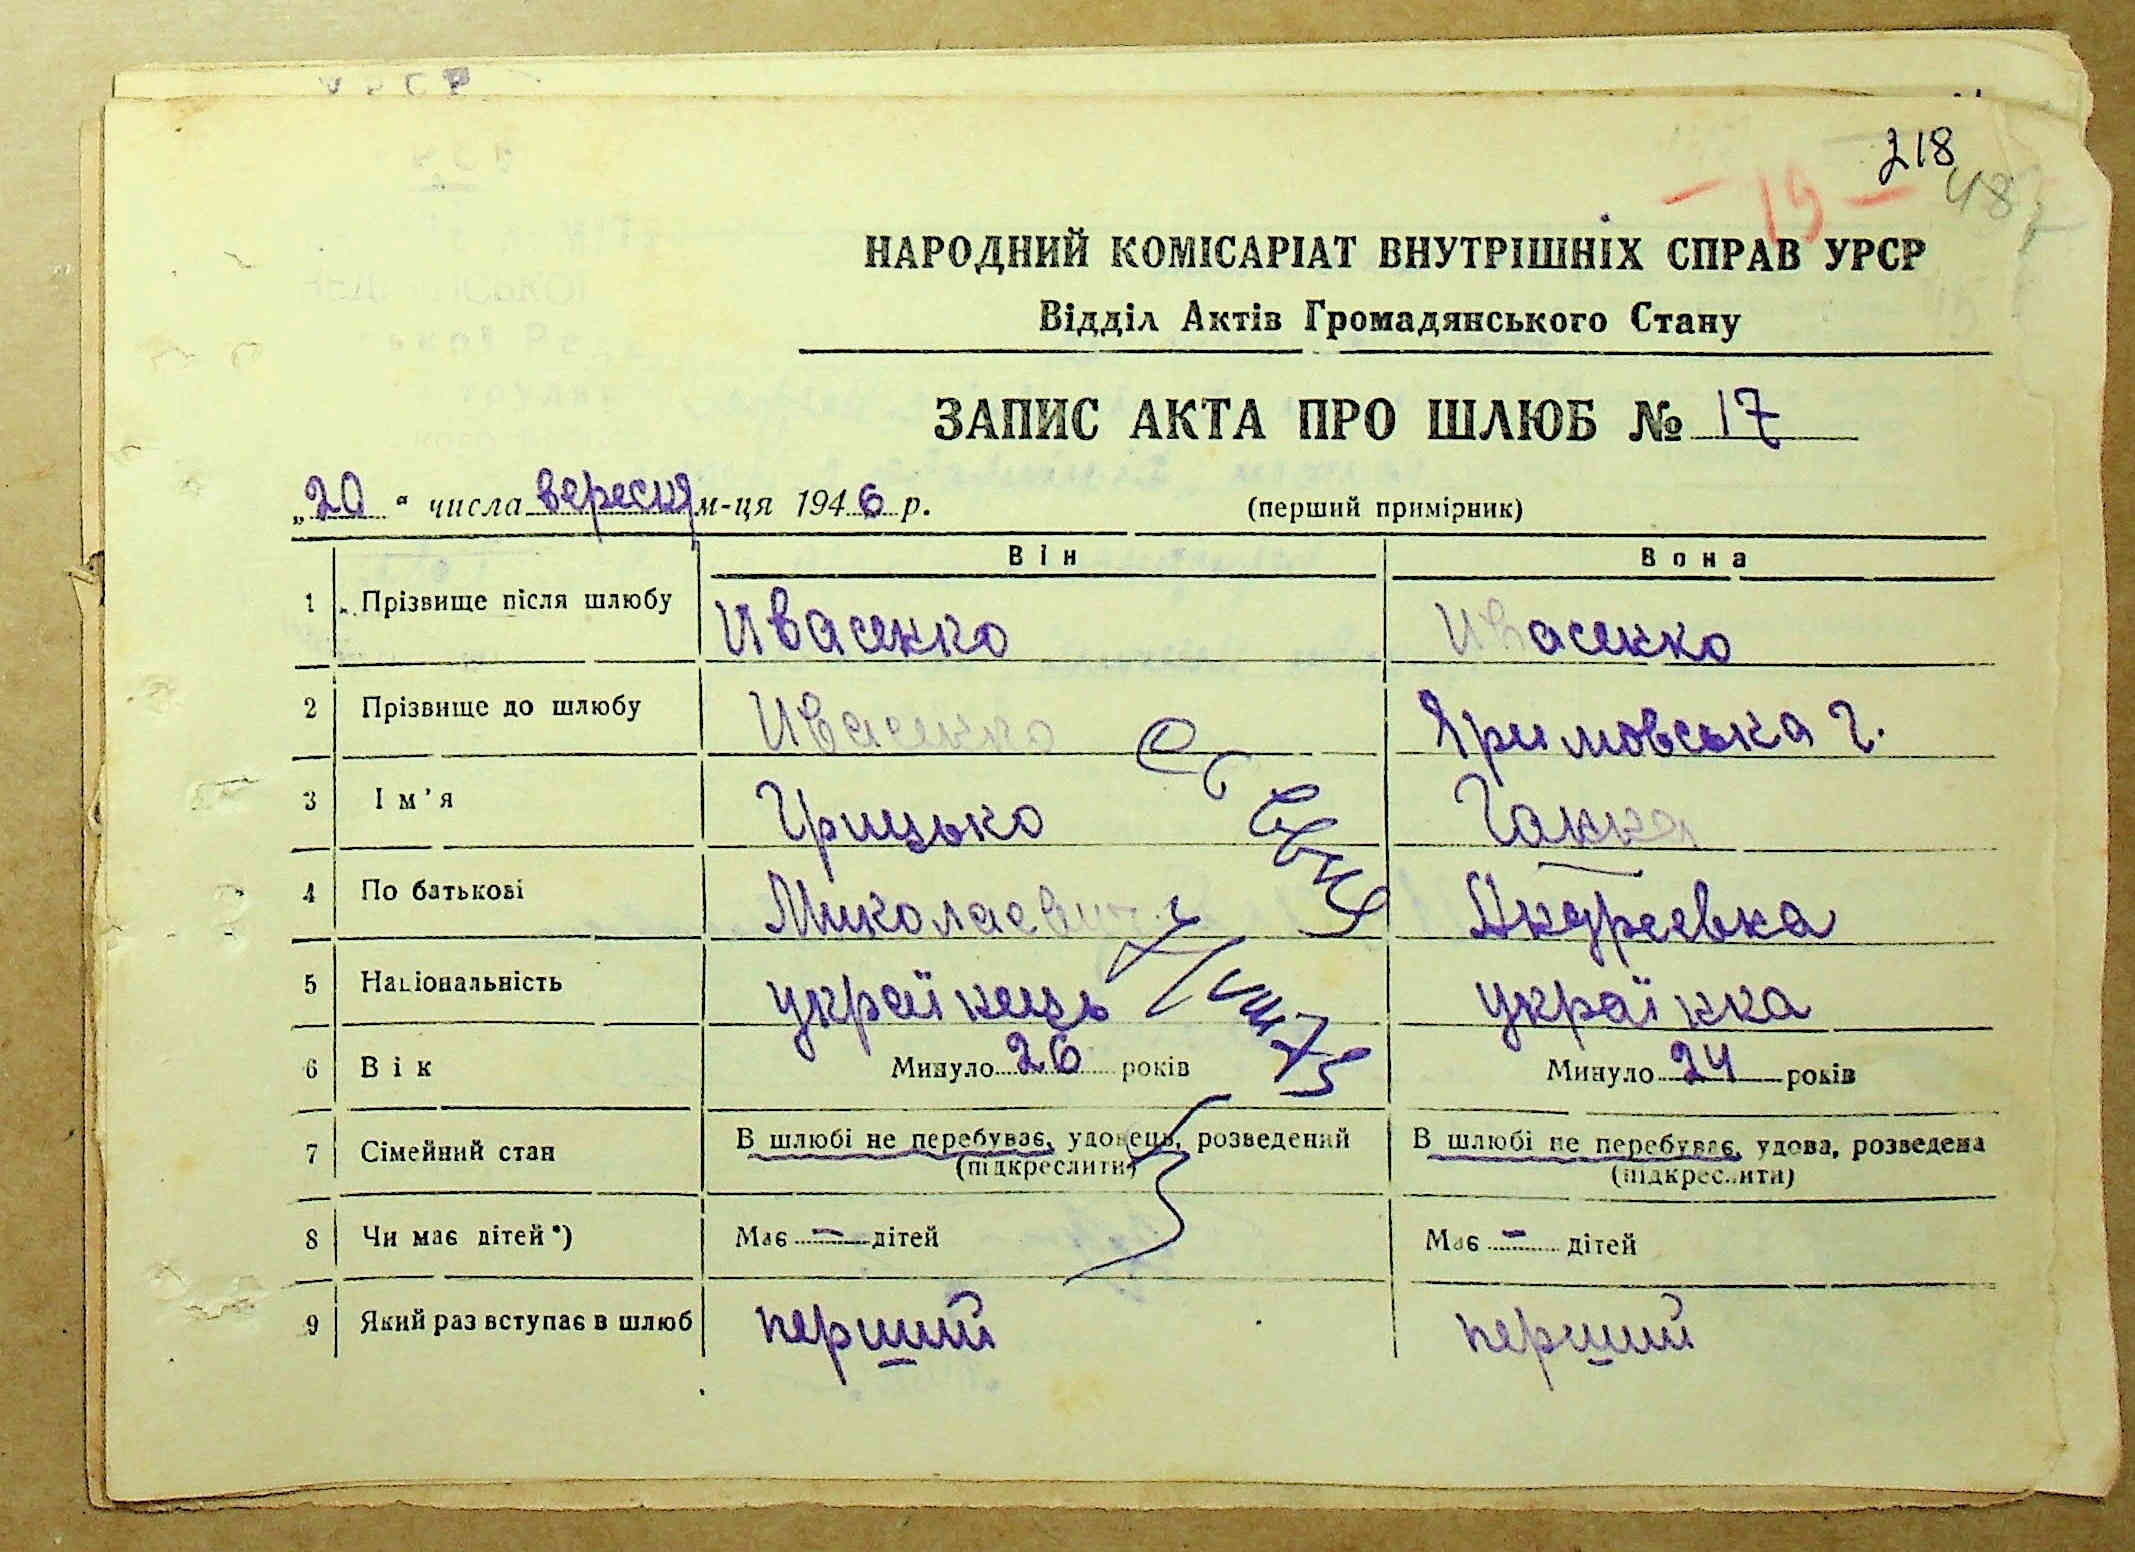 218
- 19 -
48
НАРОДНИЙ КОМІСАРІАТ ВНУТРІШНІХ СПРАВ УРСР
Відділ Актів Громадянського Стану
ЗАПИС АКТА ПРО ШЛЮБ № 17
„20“ числа вересня м-ця 1946 р. (перший примірник)
Він Вона
1 Прізвище після шлюбу Ивасенко Ивасенко
2 Прізвище до шлюбу Ивасенко Яримовська Г.
3 Ім’я Грицько Ганна
4 По батькові Миколаевич Андреевна
5 Національність українець українка
6 Вік Минуло 26 років Минуло 24 років
VIII 75
7 Сімейний стан В шлюбі не перебуває, удовець, розведений В шлюбі не перебуває, удова, розведена
(підкреслити) (підкреслити)
8 Чи має дітей*) Має – дітей Має – дітей
9 Який раз вступає в шлюб перший перший